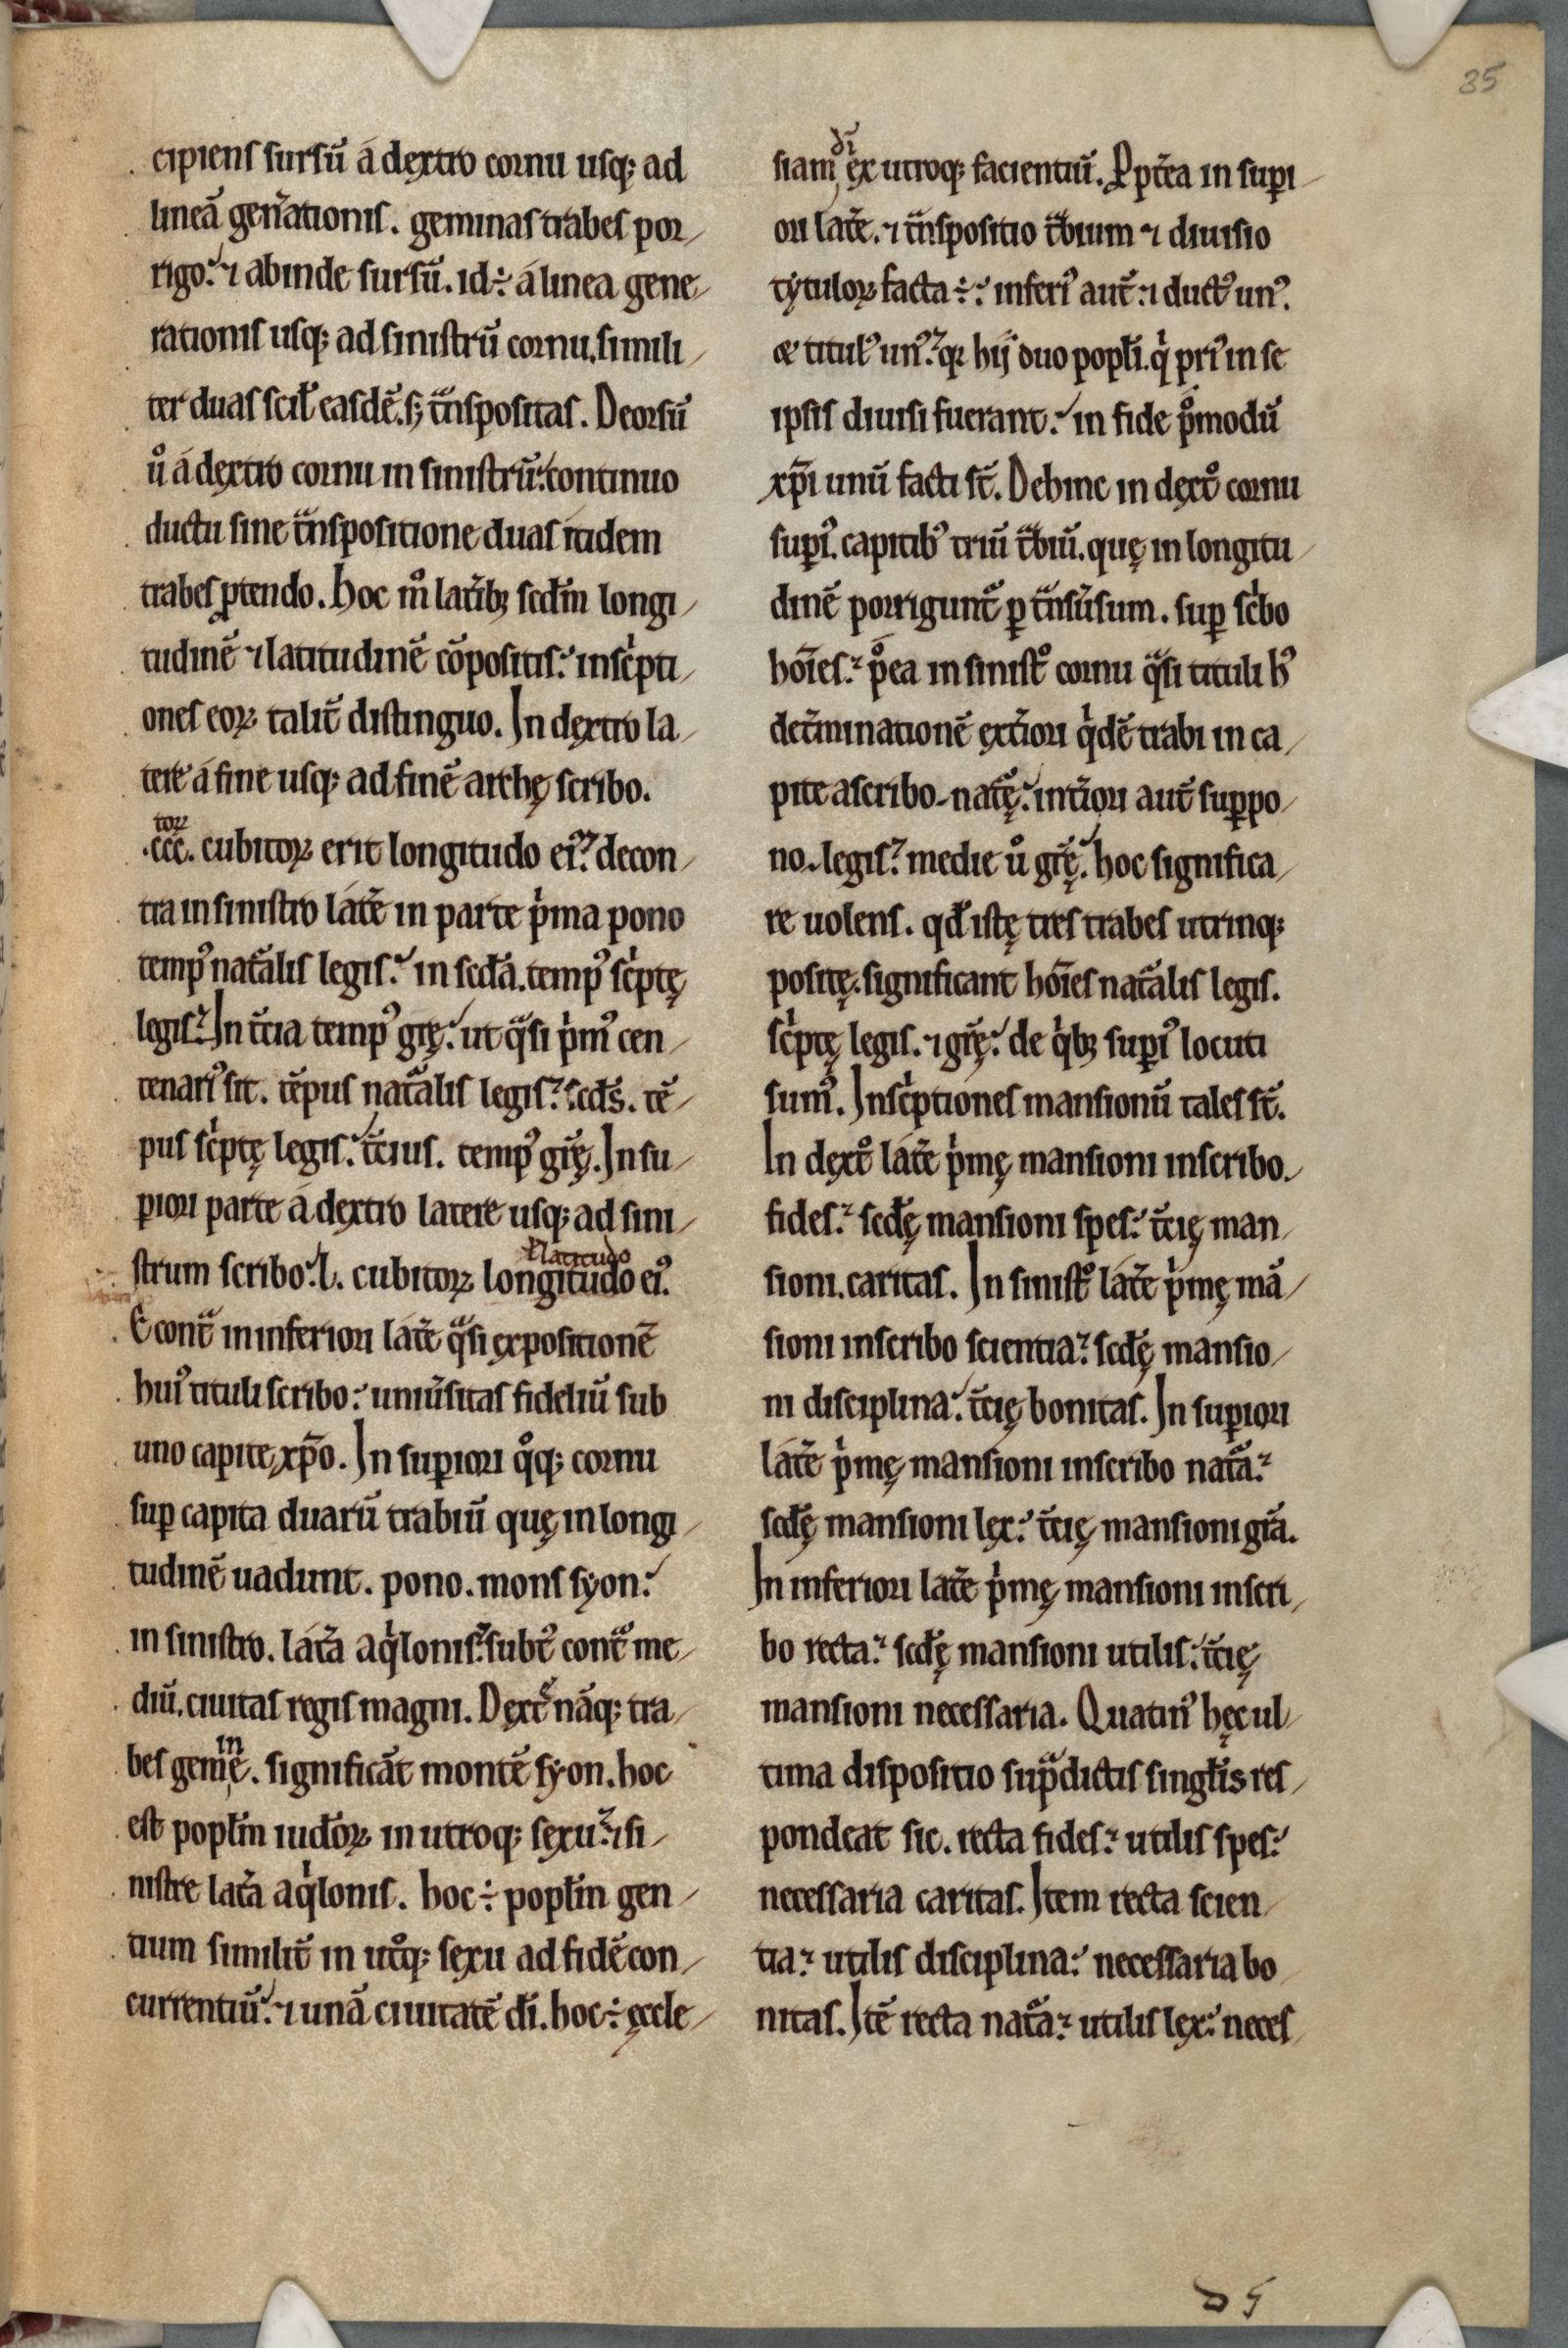 35
cipiens sursū á dextro cornu usq; ad
lineā gen̄ationis. geminas trabes por/
rigo:⁊ abinde sursū. id ÷ á linea gene/
rationis usq; ad sinistrū cornu. simili/
ter duas scił easdē. sꝫ tᷓnspositas. Deorsū
uͦ á dextro cornu in sinistrū: continuo
ductu sine tᷓnspositione duas itidem
trabes ꝓtendo. Hoc mͦ laťibꝫ scđm longi/
tudinē ⁊ latitudinē cōpositis: inscͥpti/
ones eoꝝ talit̄ distinguo. In dextro la/
tere á fine usq; ad finē archę scribo.
.ccc.toꝝ cubitoꝝ erit longitudo ei᾿: decon/
tra in sinistro láťe in parte pͥma pono
temp᾿ natᷓalis legis: in scđa. temp᾿ scͥptę
legis: In t̄cia temp᾿ grę̄: ut qᷓsi pͥm᾿ cen/
tenari᾿ sit. tēpus natᷓalis legis: scđs. tē/
pus scͥptę legis: t̄cius. temp᾿ grę̄. In su/
ꝑiori parte á dextro latere usq; ad sini/
strum scribo: L. cubitoꝝ longitudo ł latitudo ei᾿.
Econt̄ in inferiori láťe qᷓsi expositionē
hui᾿ tituli scribo: uniūsitas fideliū sub
uno capite xp̄o. In suꝑiori qͦq; cornu
suꝑ capita duarū trabiū quę in longi/
tudinē uadunt. pono. mons syon:
in sinistro. láťa aqͥlonis: subt᾿ contᷓ me/
diū. ciuitas regis magni. Dext̄ nāq; tra/
bes geminē. significāt montē syon. hoc
est popłm iuđoꝝ in utroq; sexu: ⁊ si/
nistre laťa aqͥlonis. hoc ÷ popłm gen/
tium similit̄ in utͦq; sexu ad fidē con/
currentiū: ⁊ unā ciuitatē dī. hoc ÷ ęccle/
siam dī ex utroq; facientiū. Ppt̄ea in suꝑi/
ori láťe. ⁊ tᷓnspositio tᷓbium ⁊ diuisio
tẏtuloꝝ facta ÷: inferi᾿ aut̄: ⁊ duct᾿ un᾿.
& titul᾿ un᾿: qꝛ hij duo popłi. qͥ pri᾿ in se
ipsis diuisi fuerant: in fide pͦmodū
xp̄i unū facti st̄. Dehinc in dextͦ cornu
suꝑi᾿. capitib᾿ triū tᷓbiū. quę in longitu/
dinē porrigunt᾿ ꝑ tᷓnsūsum. suꝑ scͥbo
hoīes: pͦea in sinistͦ cornu qᷓsi tituli h᾿
det̄minationē ext̄iori qͥdē trabi in ca/
pite ascribo. natᷓę: int̄iori aut̄ suꝑpo/
no. legis: medie uͦ grę̄: hoc significa/
re uolens. qđ istę tres trabes utrinq;
positę. significant hoīes natᷓalis legis.
scͥptę legis. ⁊ grę̄: de qͥbꝫ suꝑi᾿ locuti
sum᾿. Inscͥptiones mansionū tales st̄.
In dextͦ láťe pͥmę mansioni inscribo.
fides: scđę mansioni spes: t̄cię man/
sioni. caritas. In sinistͦ láťe pͥmę mā/
sioni inscribo scientia: scđę mansio/
ni disciplina: t̄cię bonitas. In suꝑiori
láťe pͥmę mansioni inscribo natᷓa:
scđę mansioni lex: t̄cię mansioni grā.
In inferiori láťe pͥmę mansioni inscri/
bo recta: scđę mansioni utilis: t̄cię
mansioni necessaria. Quatin᾿ hęc ul/
tima dispositio supᷓdictis singłis res/
pondeat sic. recta fides: utilis spes:
necessaria caritas. Item recta scien/
tia: utilis disciplina: necessaria bo
nitas. Itē recta natᷓa: utilis lex: neces/